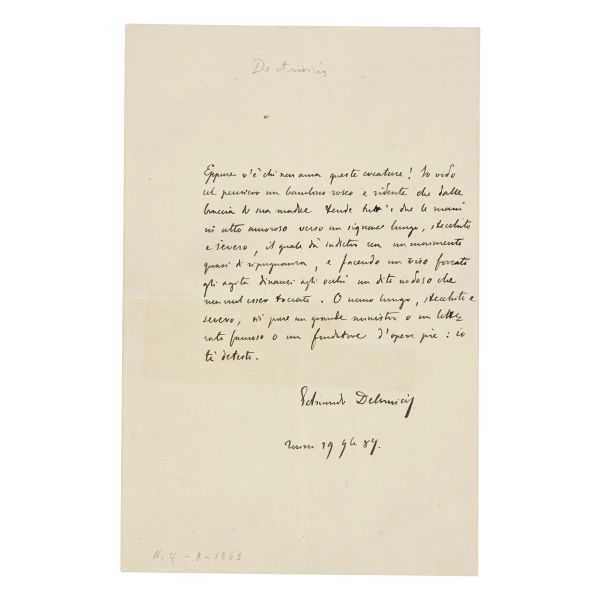 De Amicis
Eppure v'è chi non ama queste creature! Io vedo
col pensiero un bambino roseo e ridente che dalle
braccia di sua madre tende tutt'e due le mani
in atto amoroso verso un signore lungo, stecchito
e severo, il quale dà indietro con un movimento
quasi di ripugnanza, e facendo un viso forzato
gli agita dinanzi agli occhi un dito nodoso che
non vuol esser toccato. O uomo lungo, stecchito e
severo, sii pure un grande ministro o un lette
rato famoso o un fondatore d'opere pie: io
ti detesto.
Edmondo DeAmicis
19 9bre 87.
N. 4 - 9 - 1963